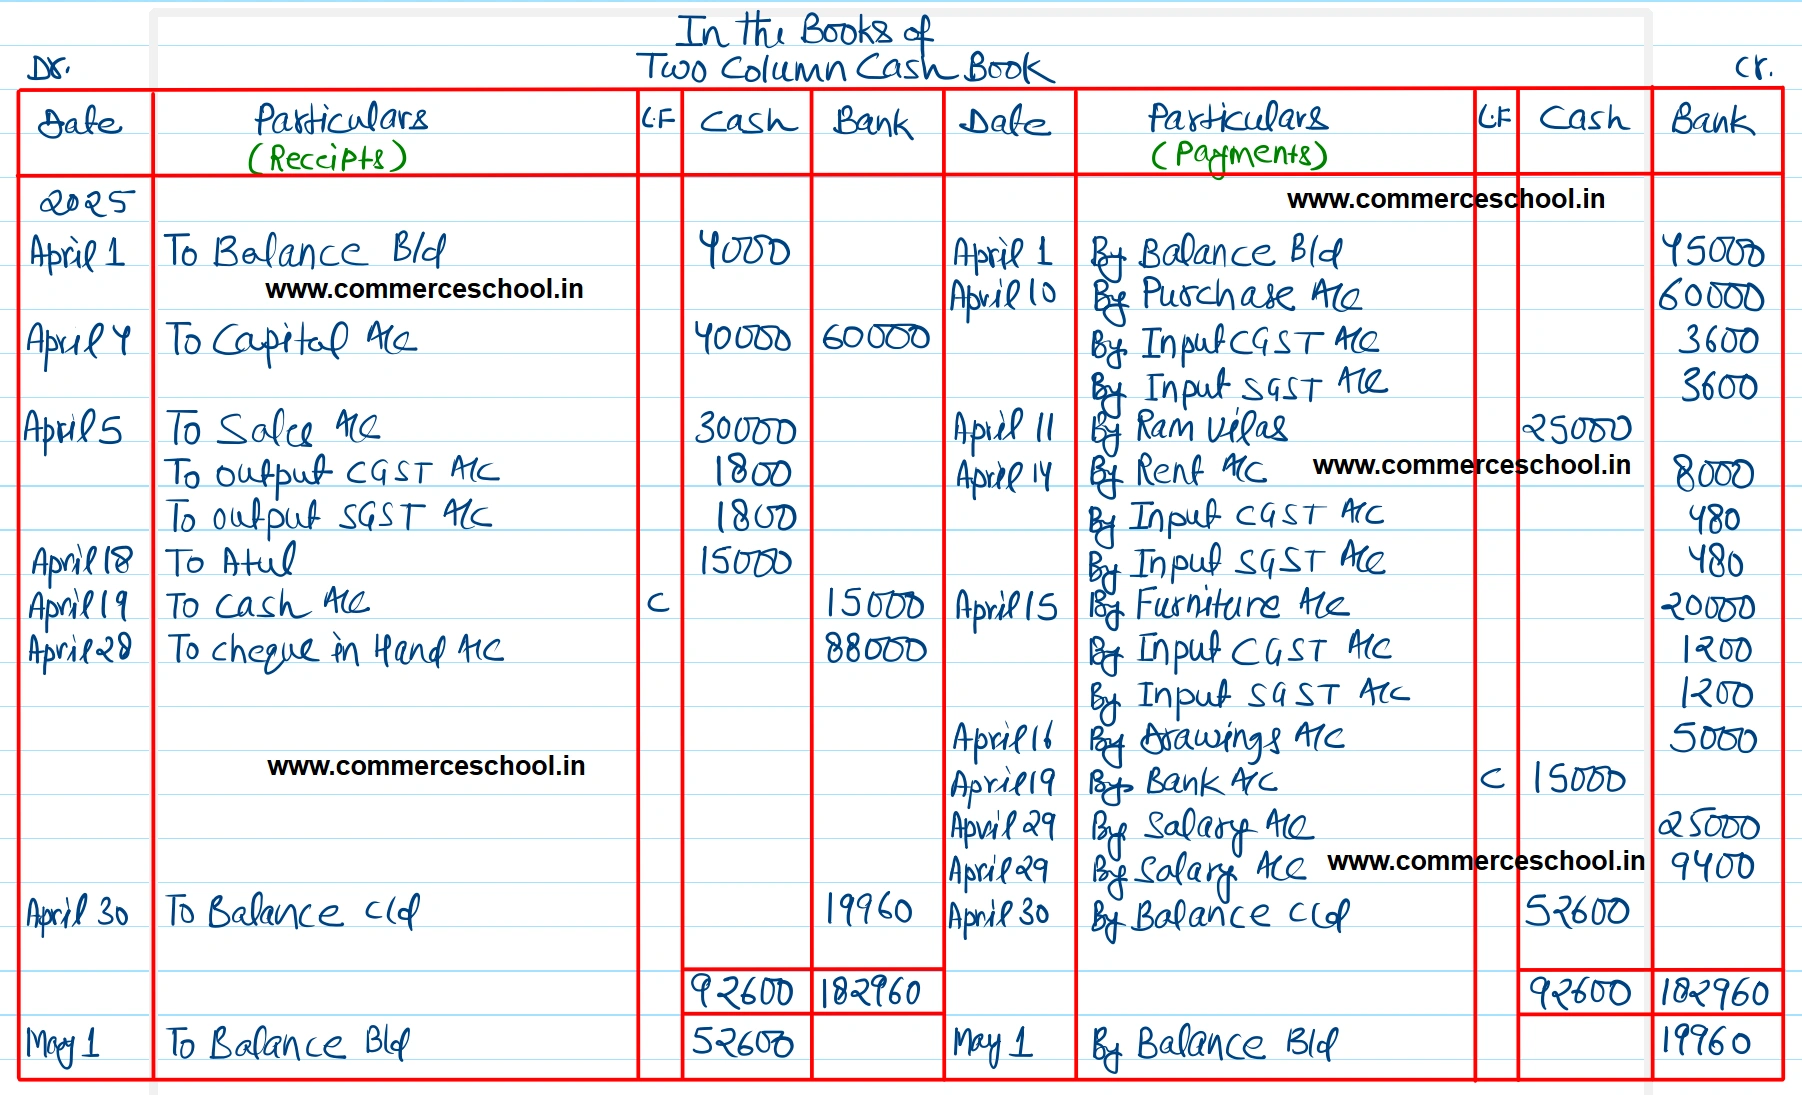 In the Books of
Dr. Two Column Cash Book Cr.
Date Particulars L.F Cash Bank Date Particulars L.F Cash Bank
(Receipts) (Payments)
2025 www.commerceschool.in
April 1 To Balance B/d 4000 April 1 By Balance B/d 45000
www.commerceschool.in April 10 By Purchase A/c 60000
April 4 To Capital A/c 40000 60000 By Input CGST A/c 3600
By Input SGST A/c 3600
April 5 To Sales A/c 30000 April 11 By Ram Vilas 25000
To output CGST A/c 1800 April 14 By Rent A/c www.commerceschool.in 8000
To output SGST A/c 1800 By Input CGST A/c 480
April 18 To Atul 15000 By Input SGST A/c 480
April 19 To Cash A/c C 15000 April 15 By Furniture A/c 20000
April 28 To cheque in Hand A/c 88000 By Input CGST A/c 1200
By Input SGST A/c 1200
April 16 By Drawings A/c 5000
www.commerceschool.in April 19 By Bank A/c C 15000
April 29 By Salary A/c 25000
April 29 By Salary A/c www.commerceschool.in 9400
April 30 To Balance c/d 19960 April 30 By Balance C/d 52600
92600 182960 92600 182960
May 1 To Balance B/d 52600 May 1 By Balance B/d 19960